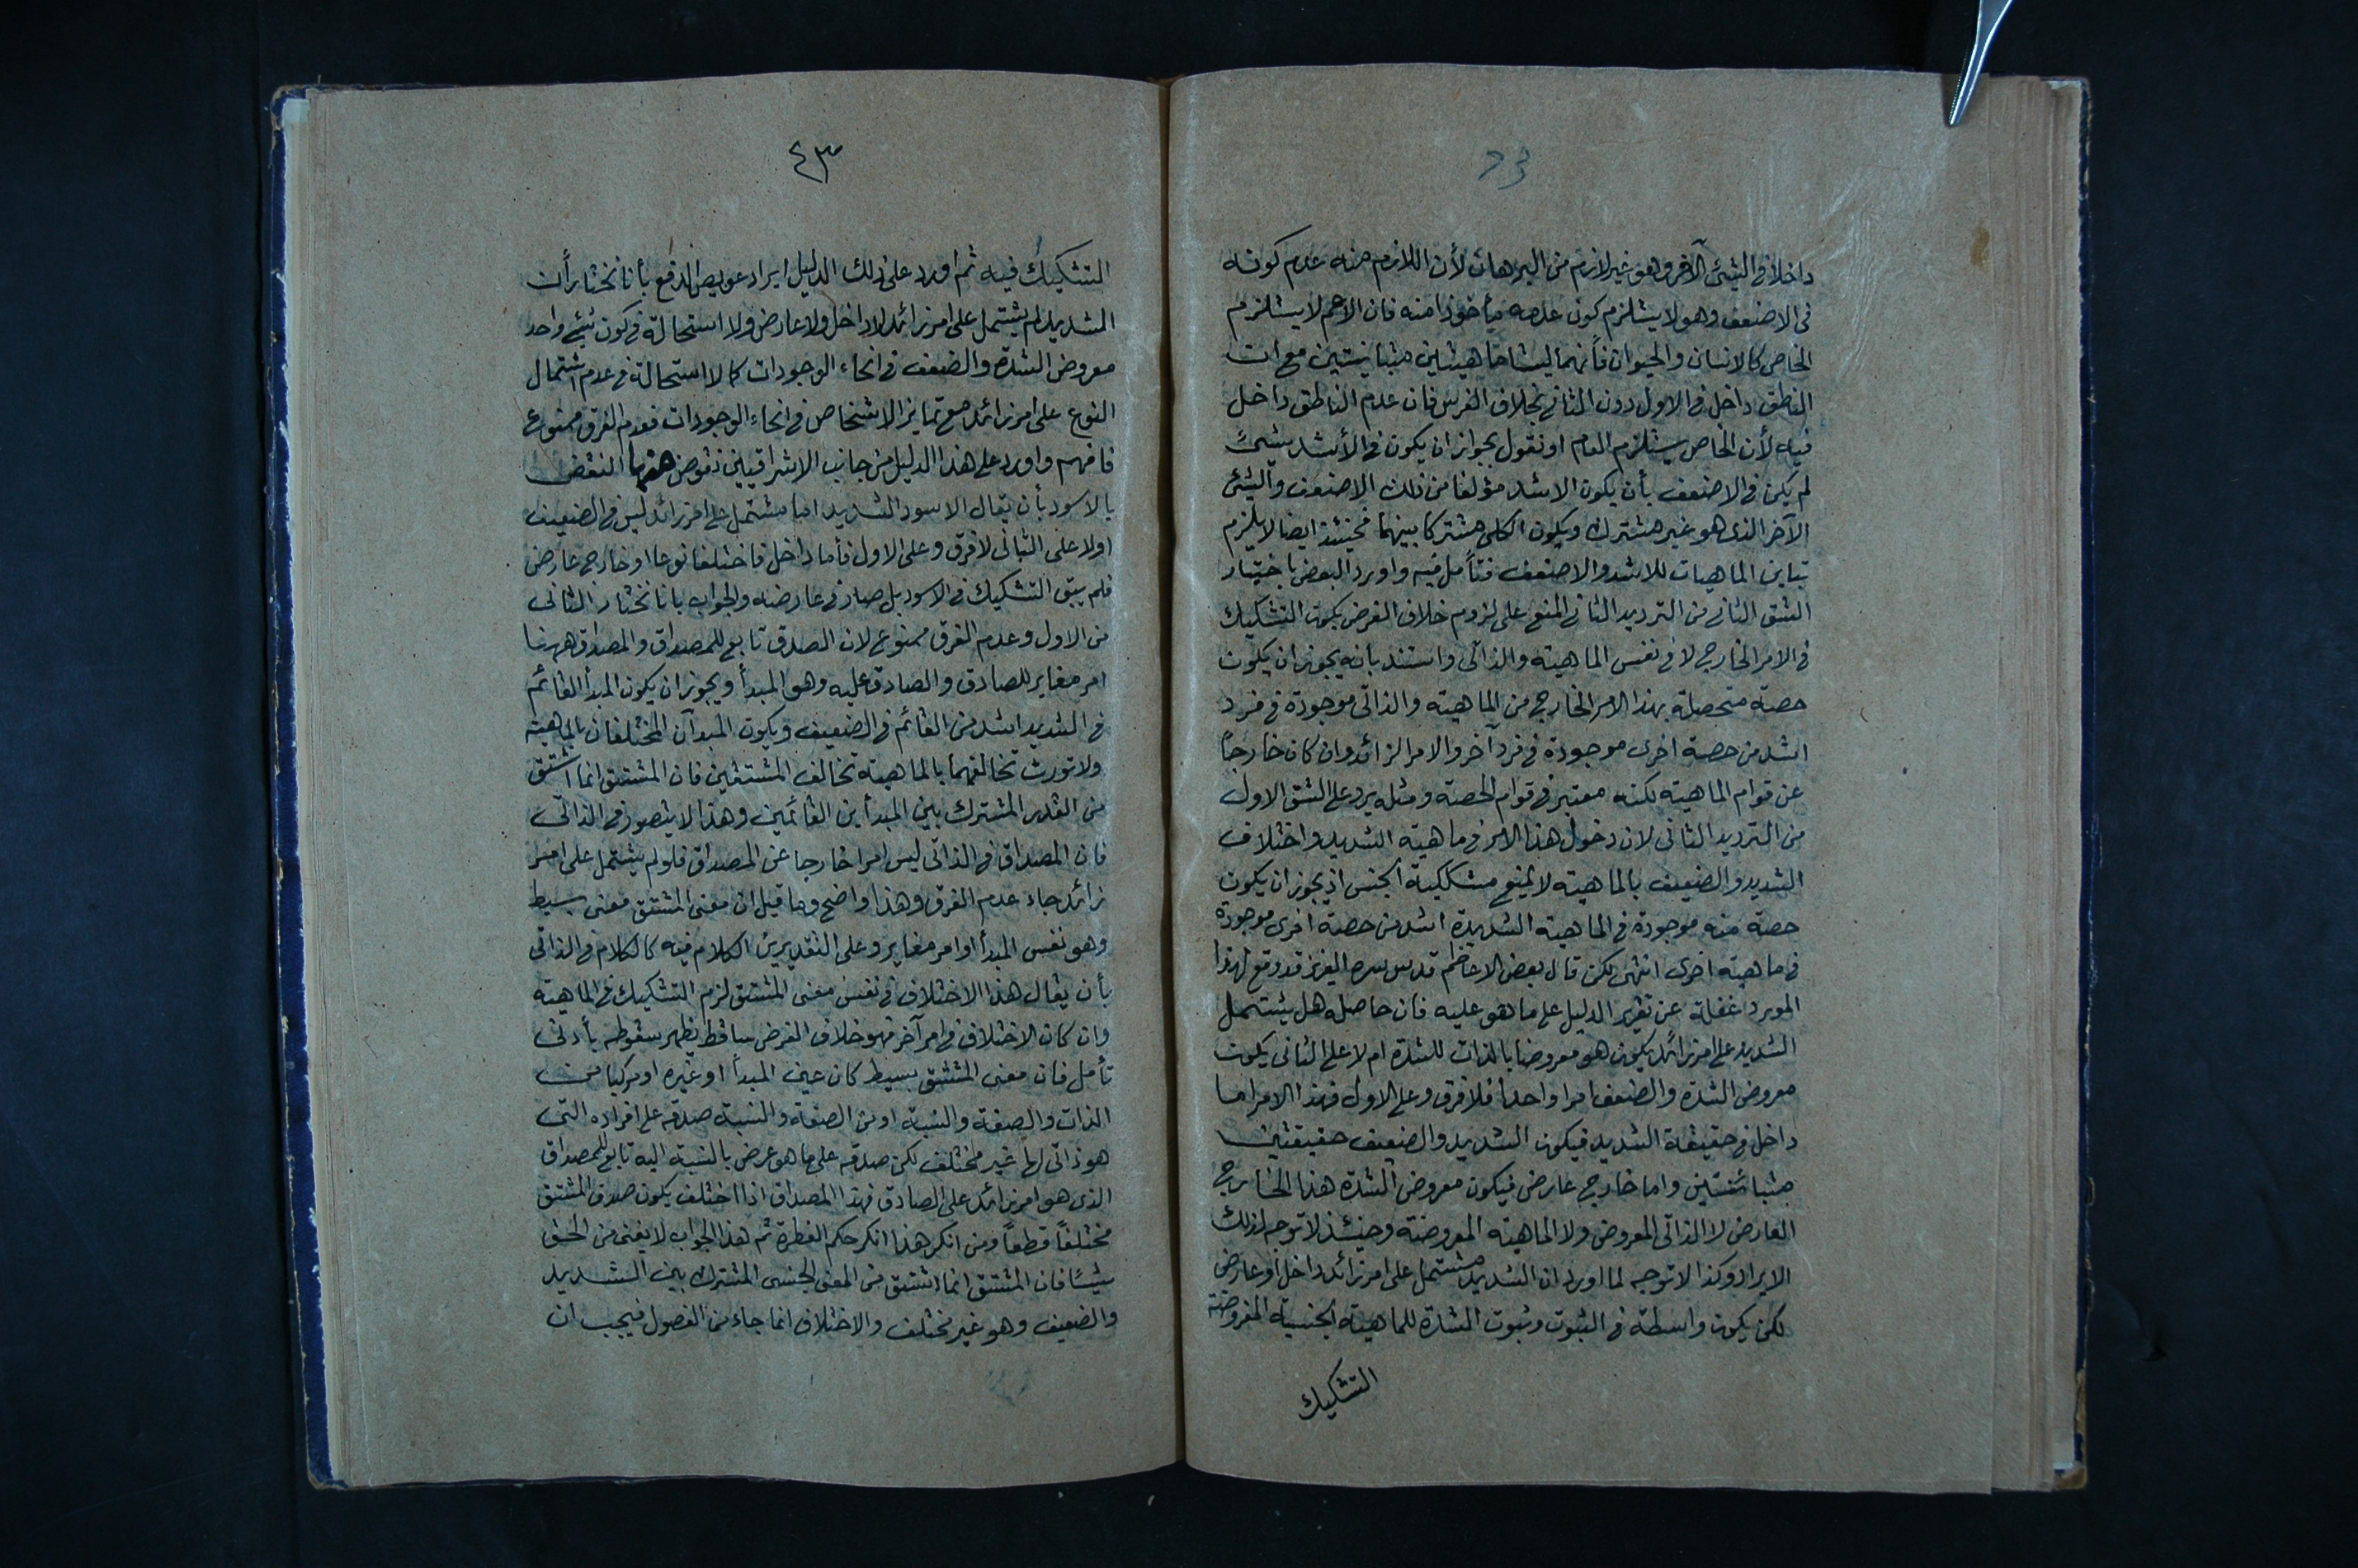 داخلا فى الشئ الآخر وهو غير لازم من البرهان لأن اللازم منه عدم كونه
فى الاضعف وهو لا يستلزم كون عدمه مأخوذا منه فان الاعم لا يستلزم
الخاص كالانسان والحيوان فأنهما ليستا ماهيتين متباينتين مع ان
الناطق داخل فى الاول دون الثانى بخلاف الفرس فان عدم الناطق داخل
فيه لأن الخاص يستلزم العام او نقول بجواز ان يكون فى الأشد شئ
لم يكن فى الاضعف بأن يكون الاشد مؤلفا من ذلك الاضعف والشئ
الآخر الذى هو غير مشترك ويكون الكلى مشتركا بينهما فحينئذ ايضا لا يلزم
تباين الماهيات للاشد والاضعف فتأمل فيه واورد البعض باختيار
الشق الثانى من الترديد الثانى المنع على لزوم خلاف الفرض بكون التشكيك
فى الامر الخارج لا فى نفس الماهية والذاتى واستند بانه يجوز ان يكون
حصة متحصلة بهذا الامر الخارج من الماهية والذاتى موجودة فى فرد
اشد من حصة اخرى موجودة فى فرد آخر والامر الزائد وان كان خارجاً
عن قوام الماهية لكنه معتبر فى قوام الحصة ومثله يرد على الشق الاول
من الترديد الثانى لان دخول هذا الامر فى ماهية الشديد واختلاف
الشديد والضعيف بالماهية لا يمنع مشككية الجنس اذ يجوز ان يكون
حصة منه موجودة فى الماهية الشديدة اشد من حصة اخرى موجودة
فى ماهية اخرى انتهى لكن قال بعض الاعاظم قدس سره العزيز قد وقع لهذا
المورد غفلة عن تقرير الدليل على ما هو عليه فان حاصله هل يشتمل
الشديد على امر زائد يكون هو معروضا بالذات للشدة ام لا على الثانى يكون
معروض الشدة والضعف امرا واحدا فلا فرق وعلى الاول فهذا الامر اما
داخل فى حقيقة الشديد فيكون الشديد والضعيف حقيقتين
متبائنتين واما خارج عارض فيكون معروض الشدة هذا الخارج
العارض لا الذاتى المعروض ولا الماهية المعروضة وحينئذ لا توجه لذلك
الايراد وكذا لا توجه لما اورد ان الشديد مشتمل على امر زائد داخل او عارض
لكن يكون واسطة فى الثبوت وثبوت الشدة للماهية الجنسية المعروضة
التشكيك
٤٣
التشكيك فيه ثم اورد على ذلك الدليل ايراد عويص الدفع بأنا نختار أن
الشديد لم يشتمل على امر زائد لا داخل ولا عارض ولا استحالة فى كون شئ واحد
معروض الشدة والضعف فى انحاء الوجودات كما لا استحالة فى عدم اشتمال
النوع على امر زائد مع تمايز الاشخاص فى انحاء الوجودات فعدم الفرق ممنوع
فافهم واورد على هذا الدليل من جانب الاشراقيين نقوض منها النقض
بالاسود بأن يقال الاسود الشديد اما مشتمل على امر زائد ليس فى الضعيف
اولا على الثانى لا فرق وعلى الاول فأما داخل فاختلفا نوعا او خارج عارض
فلم يبق التشكيك فى الاسود بل صار فى عارضه والجواب بانا نختار الثانى
من الاول وعدم الفرق ممنوع لان الصدق تابع للمصداق والمصداق ههنا
امر مغاير للصادق والصادق عليه وهو المبدأ ويجوز ان يكون المبدأ القائم
فى الشديد اشد من القائم فى الضعيف ويكون المبدآن المختلفان بالماهية
ولا تورث تخالفهما بالماهية تخالف المشتقين فان المشتق انما اشتق
من القدر المشترك بين المبدأين القائمين وهذا لا يتصور فى الذاتى
فان المصداق فى الذاتى ليس امرا خارجا عن المصداق فلو لم يشتمل على امر
زائد جاء عدم الفرق وهذا واضح وما قيل ان معنى المشتق معنى بسيط
وهو نفس المبدأ او امر مغاير وعلى التقديرين الكلام فيه كالكلام فى الذاتى
بأن يقال هذا الاختلاف فى نفس معنى المشتق لزم التشكيك فى الماهية
وان كان الاختلاف فى امر آخر فهو خلاف الفرض ساقط يظهر سقوطه بأدنى
تأمل فان معنى المشتق بسيط كان عين المبدأ او غيره او مركبا من
الذات والصفة والنسبة او من الصفة والنسبة صدقه على افراده التى
هو ذاتى لها غير مختلف لكن صدقه على ما هو عرض بالنسبة اليه تابع للمصداق
الذى هو امر زائد على الصادق فهذا المصداق اذا اختلف يكون صدق المشتق
مختلفاً قطعاً ومن انكر هذا انكر حكم الفطرة ثم هذا الجواب لا يغنى من الحق
شيئا فان المشتق انما اشتق من المعنى الجنسى المشترك بين الشديد
والضعيف وهو غير مختلف والاختلاف انما جاء من الفصول فيجب ان